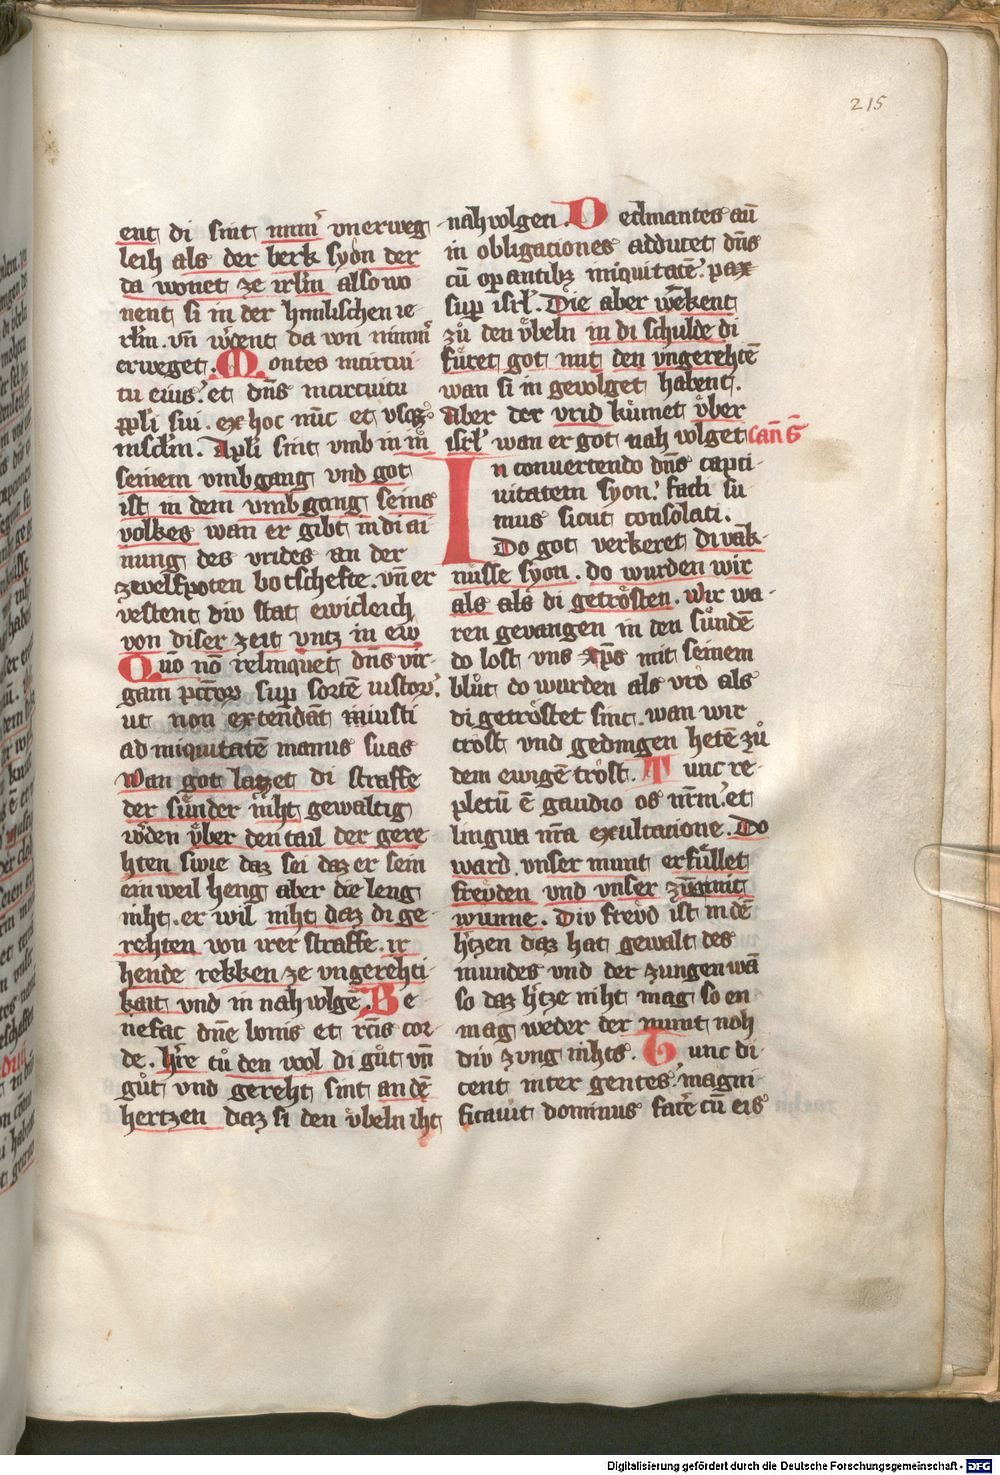 215
ent di sint nim̄ vnerweg
leih als der berk syon der
da wonet ze irl̄m also wo
nent si in der himlischen ie
rl̄m. vn̄ w̓dent da von nim̄
erweget. Montes in circui
tu eius. et dn̄s in circuitu
ppl̓i sui. ex hoc nūc et vsqꝫ
in scl̄m. Apl̓i sint vmb in in̄
seinem vmbgang vnd got
ist in dem vmbgang seins
volkes wan er gibt in di ai
nung des vrides an der
zwelfpoten botschefte. vn̄ er
vestent div stat ewicleich
von diser zeit vntz in ew
Quō nō relinquet dn̄s vir
gam pctōꝝ sup sortē iustoꝝ.
ut non extendāt iniusti
ad iniquitatē manus suas
Wan got lazzet di straffe
der sūnder niht gewaltig
w̓den vͤber den tail der gere
hten swie daz sei daz er sein
ein weil heng aber die leng
niht. er wil niht daz di ge
rehten von irer straffe. ir
hende rekken ze vngerehti
kait vnd in nah volgē. Be
nefac dn̄e bonis et rc̄is cor
de. h̓re tuͦ den wol di guͦt vn̄
guͦt vnd gereht sint an dē
hertzen daz si den vͤbeln iht
nah volgen. Declinantes aū
in obligaciones adducet dn̄s
cū opantibꝫ iniquitatē. pax
sup isrl̓. Die aber wēkent
zuͦ den vͤbeln in di schulde di
fuͤret got mit den vngerehtē
wan si in gevolget habent.
Aber der vrid kuͤmet vͤber
isrl̓ wan er got nah volget
In conuertendo dn̄s capti
uitatem syon. facti su
mus sicut consolati.
Do got verkeret di vāk
nüsse syon. do wurden wir
als als di getroͤsten. wir wa
ren gevangen in den suͤndē
do lost vns xp̄s mit seinem
bluͦt do wurden als vro als
di getroͤstet sint. wan wir
trost vnd gedingen hetē zuͦ
dem ewigē trost. Tunc re
pletū ē gaudio os nr̄m. et
lingua nr̄a exultacione. Do
ward vnser munt erfuͤllet
frevden vnd vnser zūg mit
wunne. Div frevd ist in dē
h̓tzen daz hat gewalt des
mundes vnd der zungen wā
so daz h̓tze niht mag so en
mag weder der munt noh
div zung nihts. Tunc di
cent inter gentes. magni
ficauit dominus facē cū eis
Digitalisierung gefördert durch die Deutsche Forschungsgemeinschaft - DFG